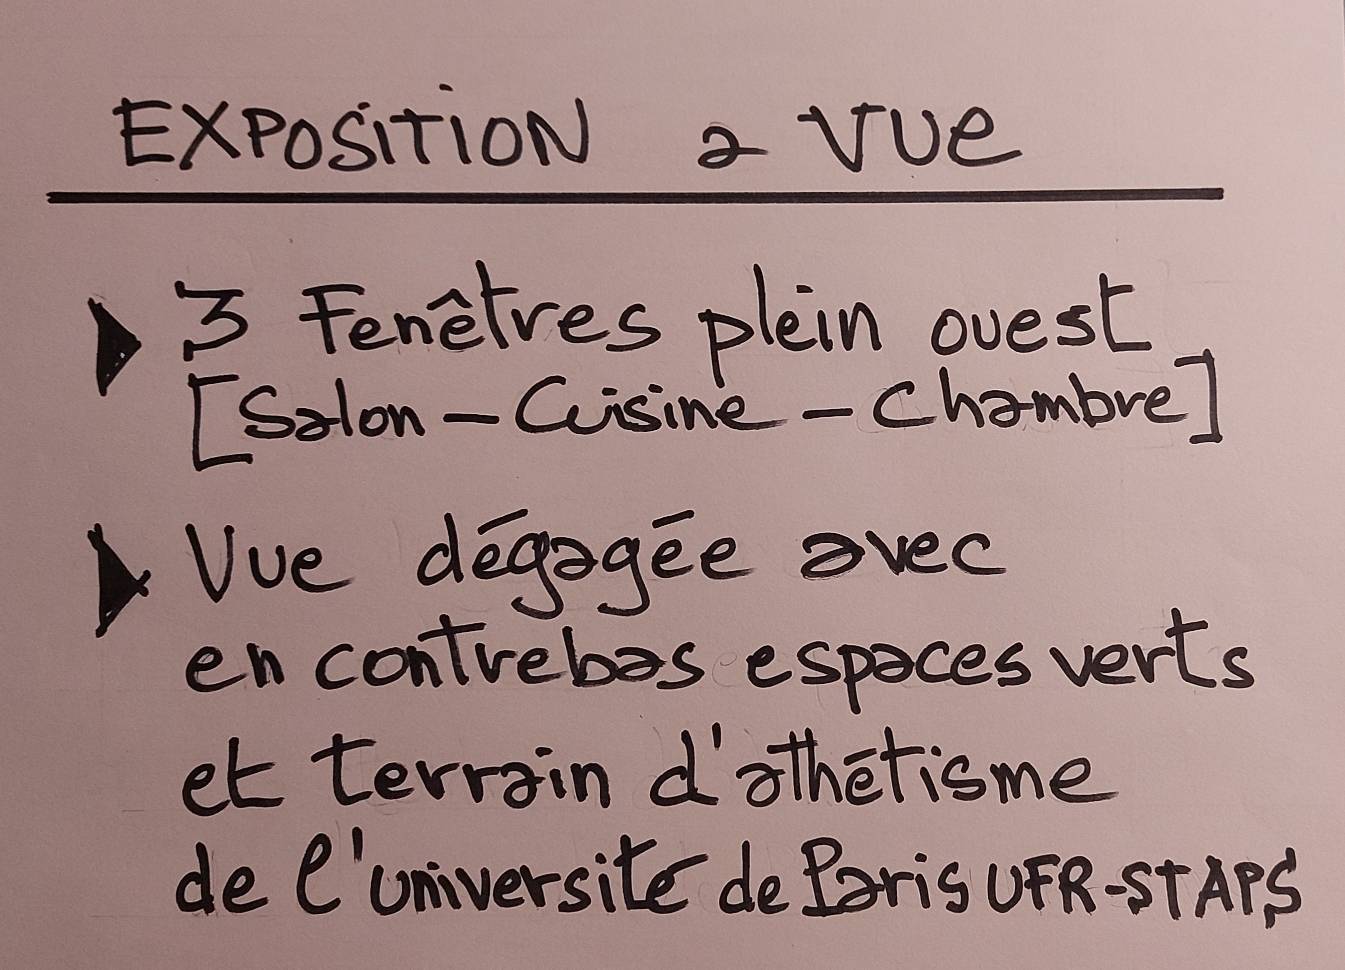 EXPOSITION a VUE
3 Fenêtres plein ouest
[Salon - Cuisine - Chambre]
Vue dégagée avec
en contrebas espaces verts
et terrain d'athétisme
de l'université de Paris UFR-STAPS